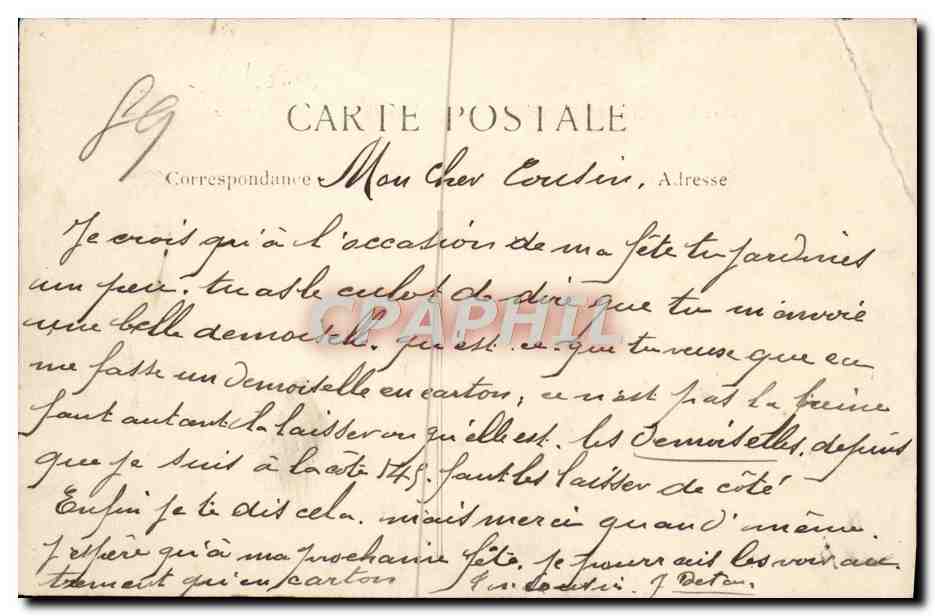 89
CARTE POSTALE
Correspondance Mon Cher Cousin, Adresse
Je crois qu'à l'occasion de ma fête tu jardines
un peu. tu as le culot de dire que tu m'envoie
une belle demoiselle. qu'est-ce-que tu veuse que ça
me fasse un demoiselle en carton; ce n'est pas la peine
faut autant la laisser ou qu'elle est. les demoiselles, depuis
que je suis à la côte 145. faut les laisser de côté
Enfin je te dis cela. mais merci quand' même.
J'espère qu'à ma prochaine fête. je pourrais les voir au
trement qu'en carton Ton cousin. J
CPAPHIL